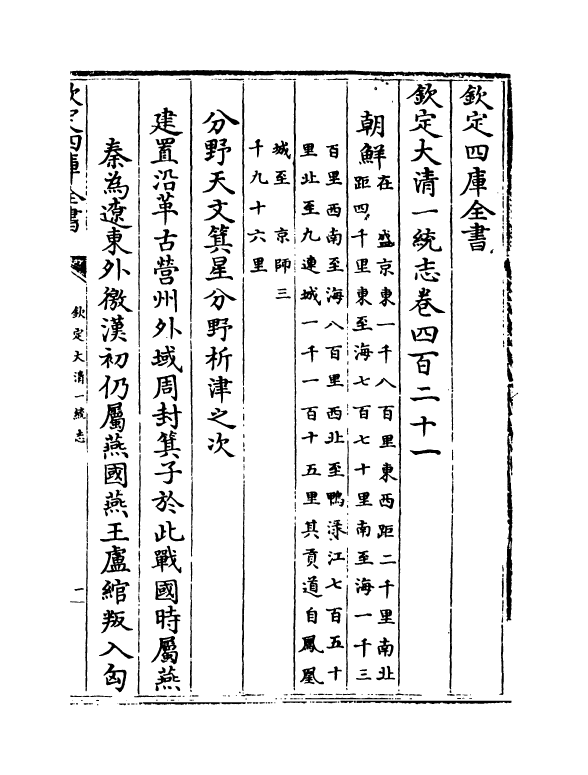 欽定四庫全書
欽定大清一統志卷四百二十一
朝鮮在　盛京東一千八百里東西距二千里南北
距四千里東至海七百七十里南至海一千三
百里西南至海八百里西北至鴨淥江七百五十
里北至九連城一千一百十五里其貢道自鳳凰
城至　京師三
千九十六里
分野天文箕星分野析津之次
建置沿革古營州外域周封箕子於此戰國時屬燕
秦為遼東外徼漢初仍屬燕國燕王盧綰叛入匈
欽定四庫全書
欽定大清一統志
一